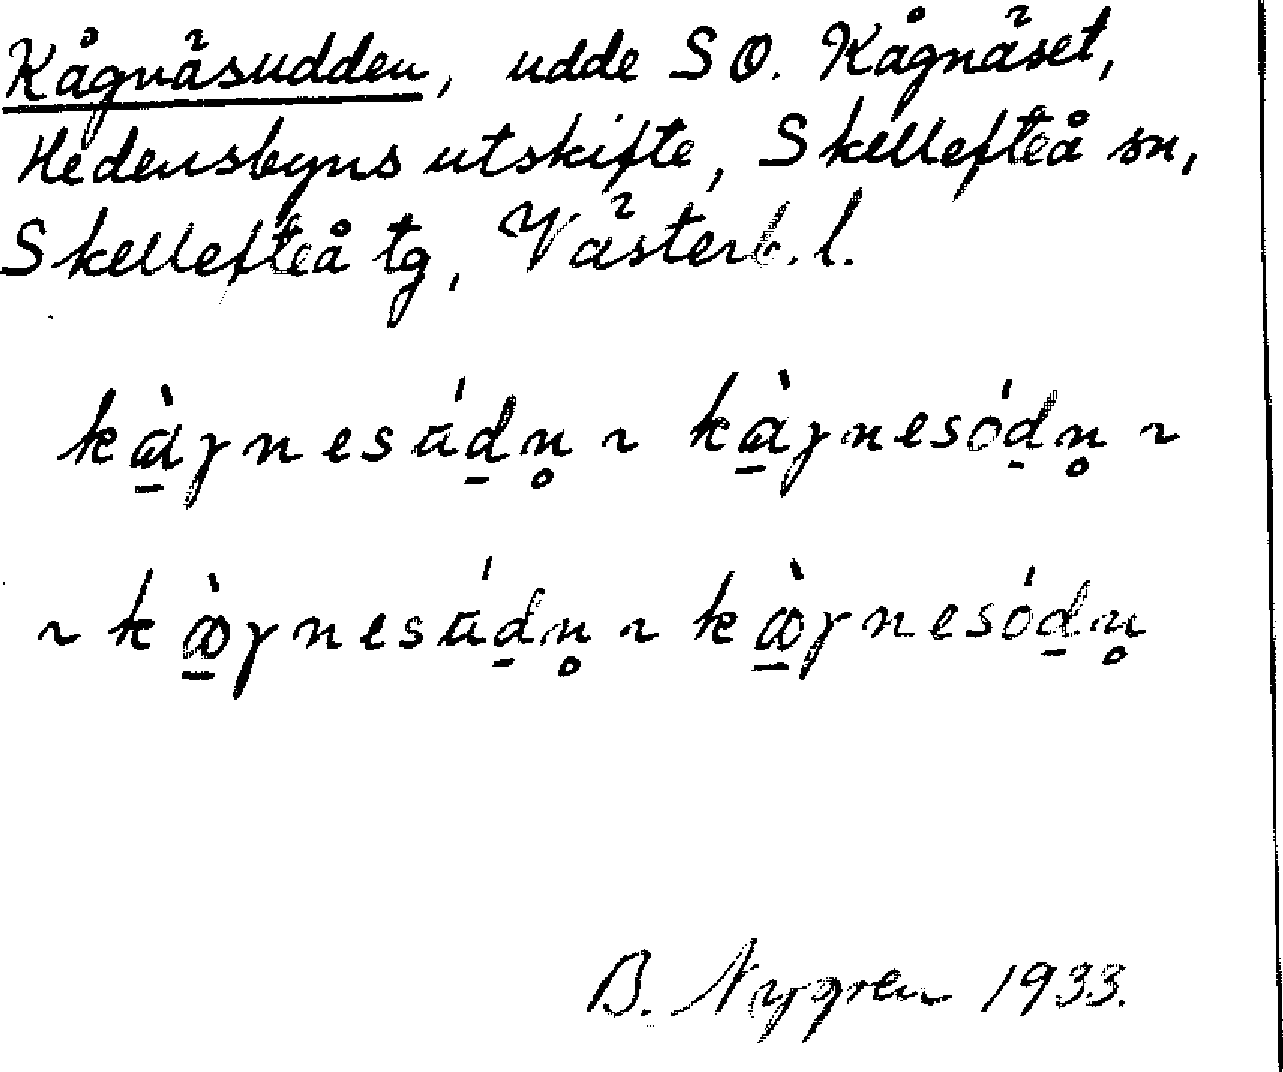 Kågnäsudden, udde SO. Kågnäset,
Hedensbyns utskifte, Skellefteå sn,
Skellefteå tg, Västerb. l.
kɑ̱̀γnesúd̠n̥ ~ kɑ̱̀γnesód̠n̥ ~
~ kꝏ̱̀γnesúd̠n̥ ~ kꝏ̱̀γnesód̠n̥
B. Nygren 1933.